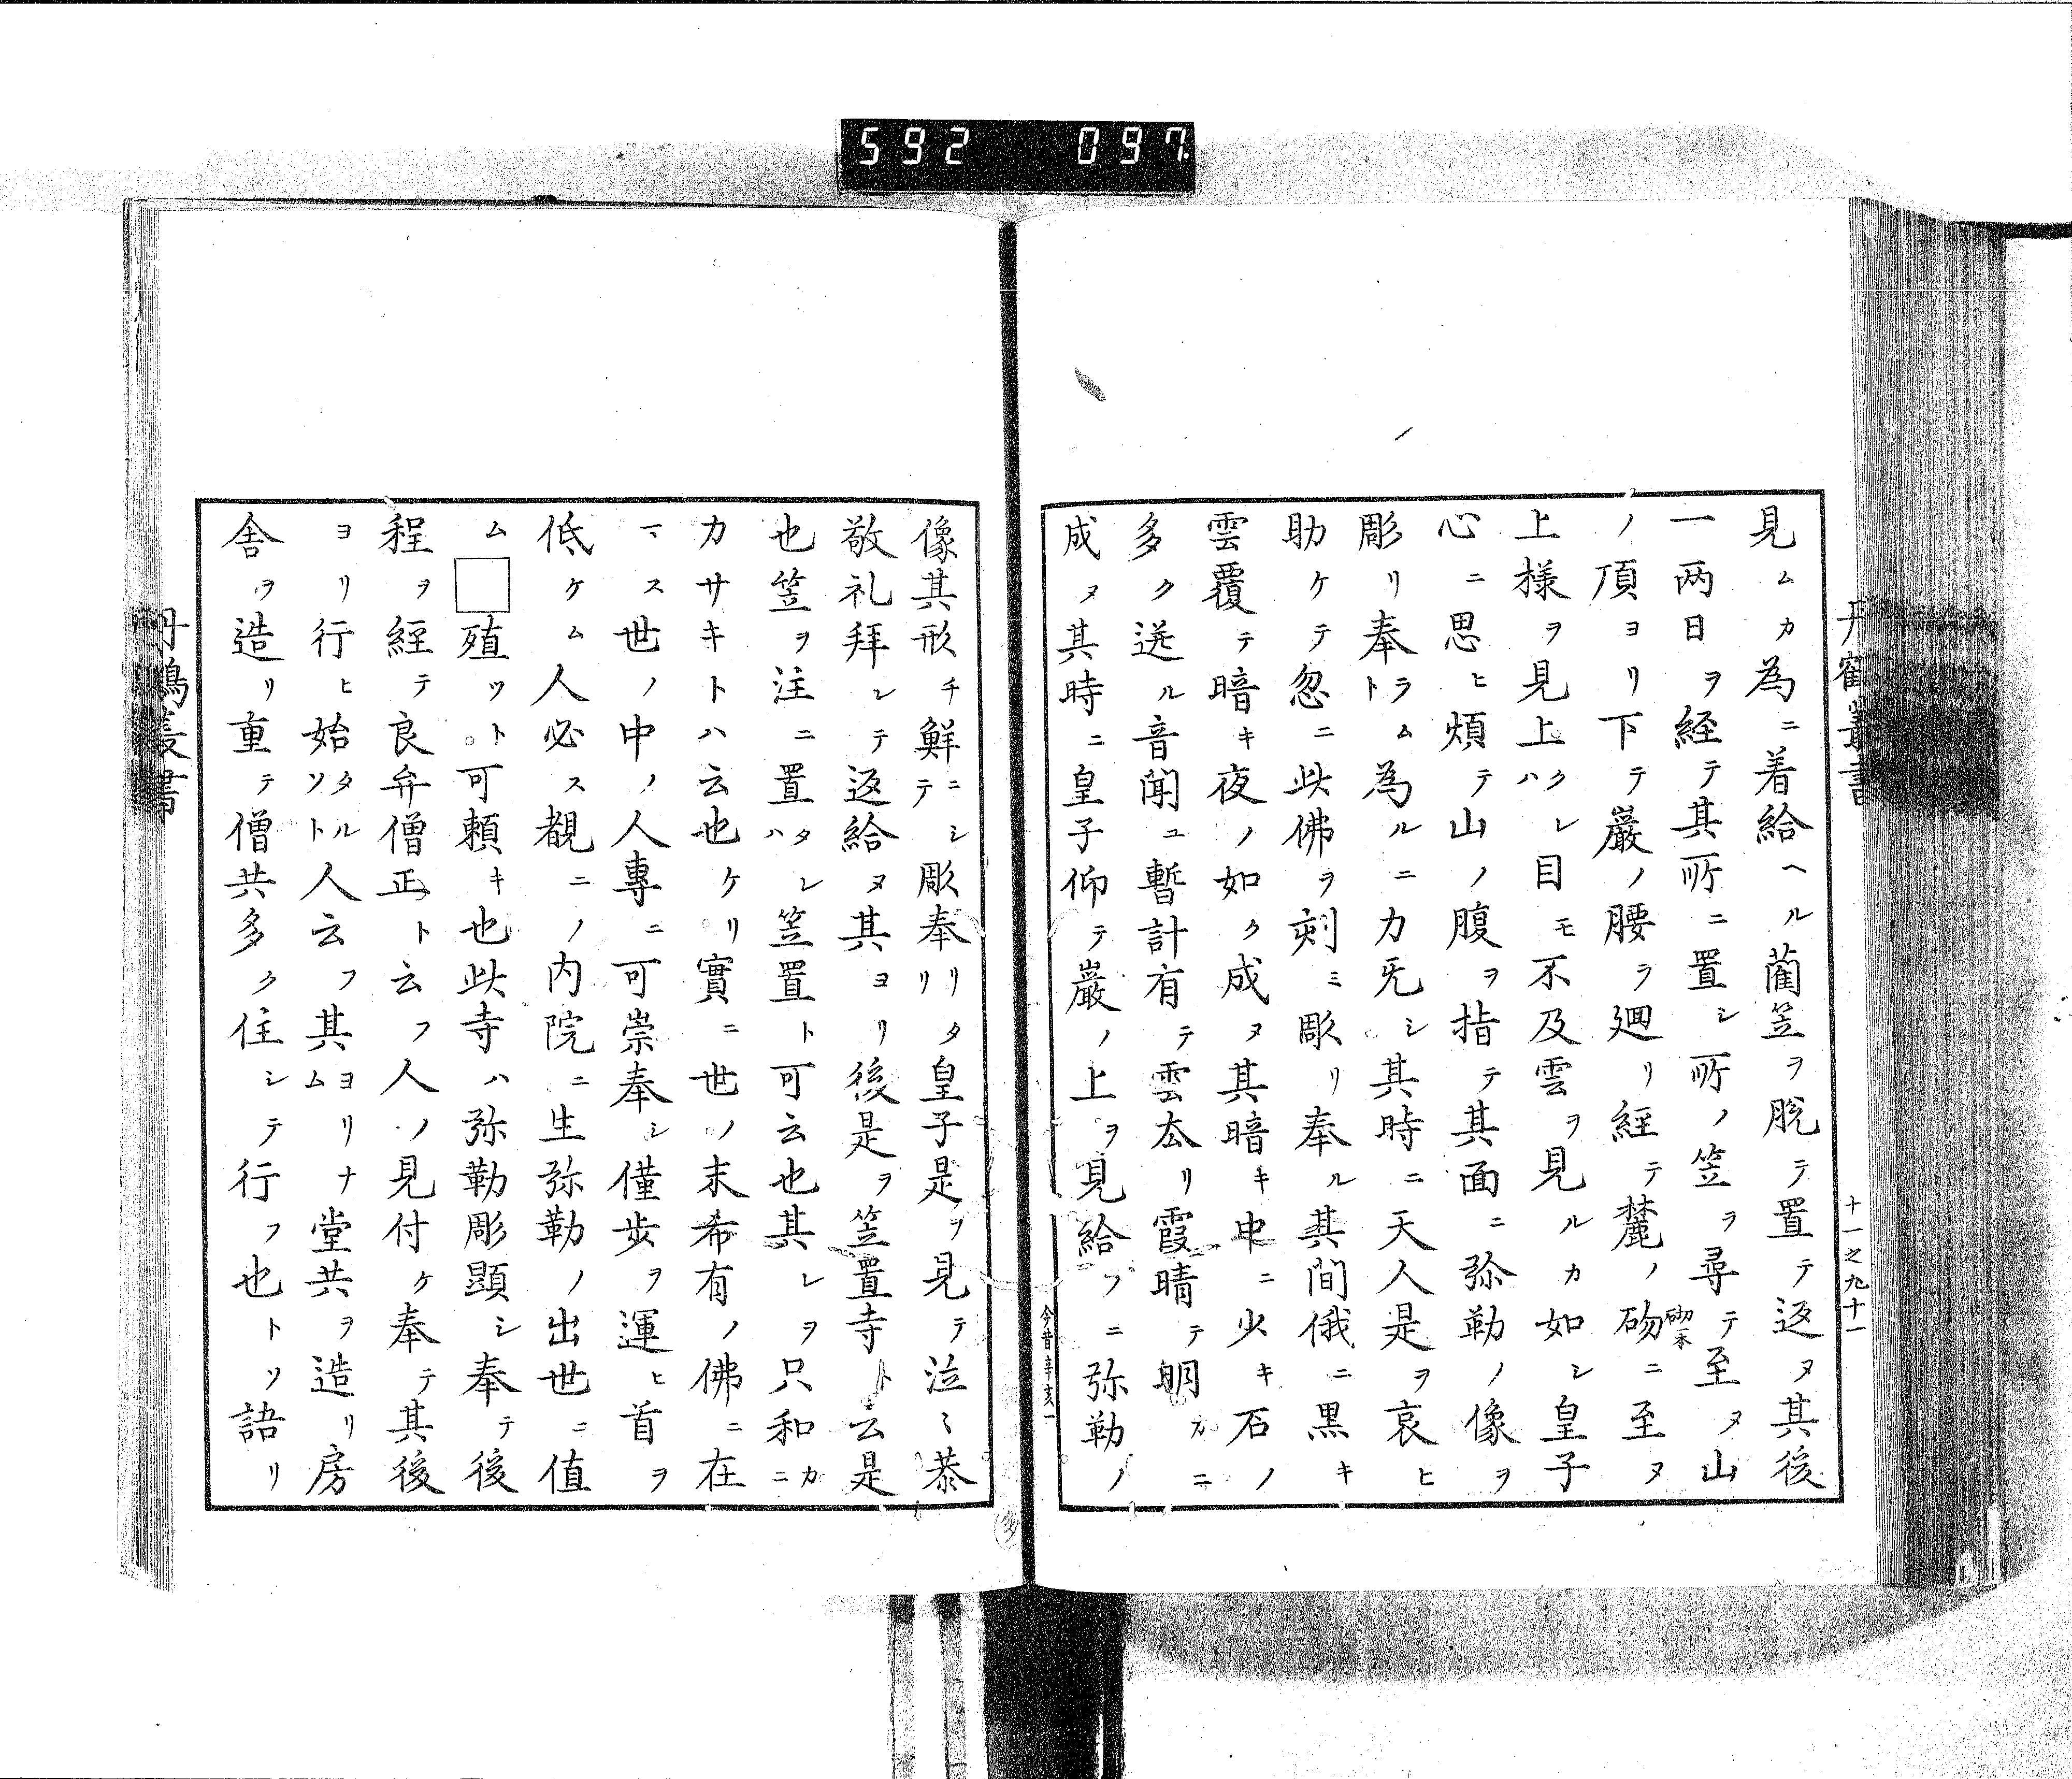 592 097
丹鶴叢書
十一之九十一
見ムカ為ニ着給ヘル藺笠ヲ脱テ置テ返ヌ其後
一両日ヲ経テ其所ニ置シ所ノ笠ヲ尋テ至ヌ山
ノ頂ヨリ下テ巌ノ腰ラ廻リ経テ麓ノ砌ニ至ヌ
上様ヲ見上クレハ目モ不及雲ヲ見ルカ如シ皇子
心ニ思ヒ煩テ山ノ腹ヲ指テ其面ニ弥勒ノ像ヲ
彫リ奉ラムト為ルニ力旡シ其時ニ天人是ヲ哀ヒ
助ケテ忽ニ此佛ヲ刻ミ彫リ奉ル其間俄ニ黒キ
雲覆テ暗キ夜ノ如ク成ヌ其暗キ中ニ少キ石ノ
多ク迸ル音聞ユ暫計有テ雲厺リ霞晴テ明カニ
成ヌ其時ニ皇子仰テ巌ノ上ヲ見給フニ弥勒ノ
今昔辛亥一
像其形チ鮮ニシテ彫奉リタリ皇子是ヲ見テ泣〻恭
敬礼拜シテ返給ヌ其ヨリ後是ヲ笠置寺ト云是
也笠ヲ注ニ置タレハ笠置ト可云也其レヲ只和カニ
カサキトハ云也ケリ實ニ世ノ末希有ノ佛ニ在
マス世ノ中ノ人專ニ可崇奉シ僅歩ヲ運ヒ首ヲ
低ケム人必ス覩ニノ内院ニ生弥勒ノ出世ニ値
ム□殖ツト可頼キ也此寺ハ弥勒彫顕シ奉テ後
程ヲ經テ良弁僧正ト云フ人ノ見付ケ奉テ其後
ヨリ行ヒ始タルソト人云フ其ヨリナム堂共ヲ造リ房
舎ヲ造リ重テ僧共多ク住シテ行フ也トソ語リ
丹鶴叢書